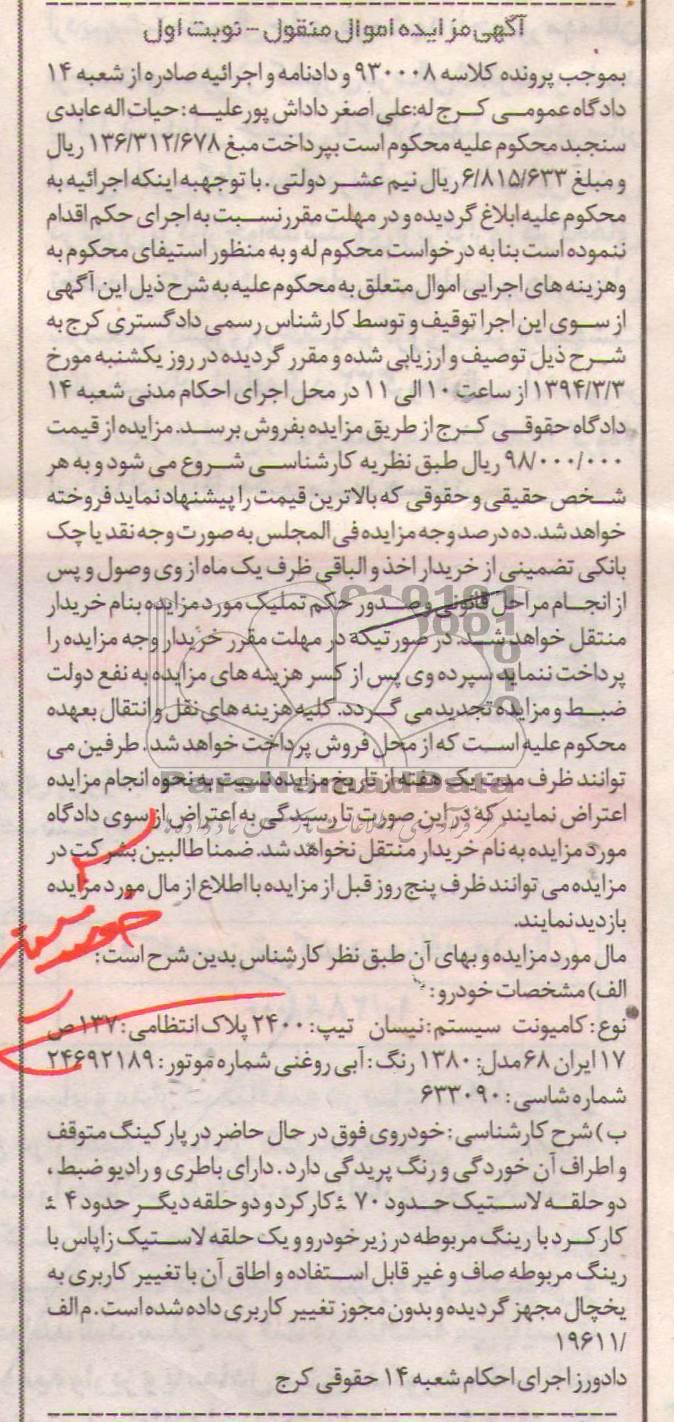 آگهی مزایده اموال منقول - نوبت اول
بموجب پرونده کلاسه ۹۳۰۰۰۸ و دادنامه و اجرائیه صادره از شعبه ۱۴
دادگاه عمومی کرج له:علی اصغر داداش پورعلیه: حیات اله عابدی
سنجبد محکوم علیه محکوم است بپرداخت مبغ ۱۳۶/۳۱۲/۶۷۸ ریال
و مبلغ ۶/۸۱۵/۶۳۳ ریال نیم عشر دولتی. با توجهبه اینکه اجرائیه به
محکوم علیه ابلاغ گردیده و در مهلت مقررنسبت به اجرای حکم اقدام
ننموده است بنا به درخواست محکوم له و به منظور استیفای محکوم به
وهزینه های اجرایی اموال متعلق به محکوم علیه به شرح ذیل این آگهی
از سوی این اجرا توقیف و توسط کارشناس رسمی دادگستری کرج به
شرح ذیل توصیف و ارزیابی شده و مقرر گردیده در روز یکشنبه مورخ
۱۳۹۴/۳/۳ از ساعت ۱۰ الی ۱۱ در محل اجرای احکام مدنی شعبه ۱۴
دادگاه حقوقی کرج از طریق مزایده بفروش برسد. مزایده از قیمت
۹۸/۰۰۰/۰۰۰ ریال طبق نظریه کارشناسی شروع می شود و به هر
شخص حقیقی و حقوقی که بالاترین قیمت را پیشنهاد نماید فروخته
خواهد شد. ده درصد وجه مزایده فی المجلس به صورت وجه نقد یا چک
بانکی تضمینی از خریدار اخذ و الباقی ظرف یک ماه از وی وصول و پس
از انجام مراحل قانونی و صدور حکم تملیک مورد مزایده بنام خریدار
منتقل خواهد شد. در صورتیکه در مهلت مقرر خریدار وجه مزایده را
پرداخت ننماید سپرده وی پس از کسر هزینه های مزایده به نفع دولت
ضبط و مزایده تجدید می گردد. کلیه هزینه های نقل و انتقال بعهده
محکوم علیه است که از محل فروش پرداخت خواهد شد. طرفین می
توانند ظرف مدت یک هفته از تاریخ مزایده نسبت به نحوه انجام مزایده
ParsNamadData
اعتراض نمایند که در این صورت تا رسیدگی به اعتراض از سوی دادگاه
مورد مزایده به نام خریدار منتقل نخواهد شد. ضمنا طالبین بشرکت در
مزایده می توانند ظرف پنج روز قبل از مزایده با اطلاع از مال مورد مزایده
بازدید نمایند.
مال مورد مزایده و بهای آن طبق نظر کارشناس بدین شرح است:
الف) مشخصات خودرو:
نوع: کامیونت سیستم: نیسان تیپ: ۲۴۰۰ پلاک انتظامی: ۱۳۷ ص
۱۷ ایران ۶۸ مدل: ۱۳۸۰ رنگ: آبی روغنی شماره موتور: ۲۴۶۹۲۱۸۹
شماره شاسی: ۶۳۳۰۹۰
ب) شرح کارشناسی: خودروی فوق در حال حاضر در پارکینگ متوقف
و اطراف آن خوردگی و رنگ پریدگی دارد. دارای باطری و رادیو ضبط،
دو حلقه لاستیک حدود ۷۰ ٪ کارکرد و دو حلقه دیگر حدود ۴ ٪
کارکرد با رینگ مربوطه در زیر خودرو و یک حلقه لاستیک زاپاس با
رینگ مربوطه صاف و غیر قابل استفاده و اطاق آن با تغییر کاربری به
یخچال مجهز گردیده و بدون مجوز تغییر کاربری داده شده است. م الف
/۱۹۶۱۱
دادورز اجرای احکام شعبه ۱۴ حقوقی کرج